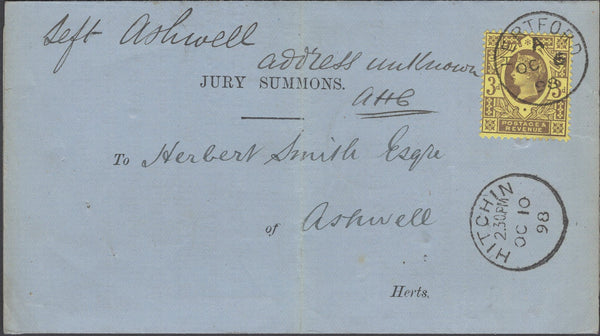 left Ashwell
address unknown
JURY SUMMONS.
AHG
To Herbert Smith Esqre
of Ashwell
Herts.
HERTFORD
A
OC
98
3d 3d
POSTAGE &
REVENUE
HITCHIN
2.30PM
OC 10
98